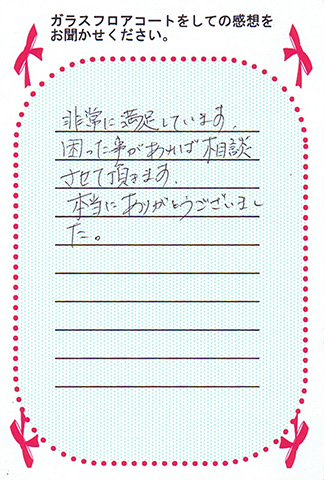 ガラスフロアコートをしての感想を
お聞かせください。
非常に満足しています.
困った事があれば相談
させて頂きます.
本当にありがとうございまし
た。